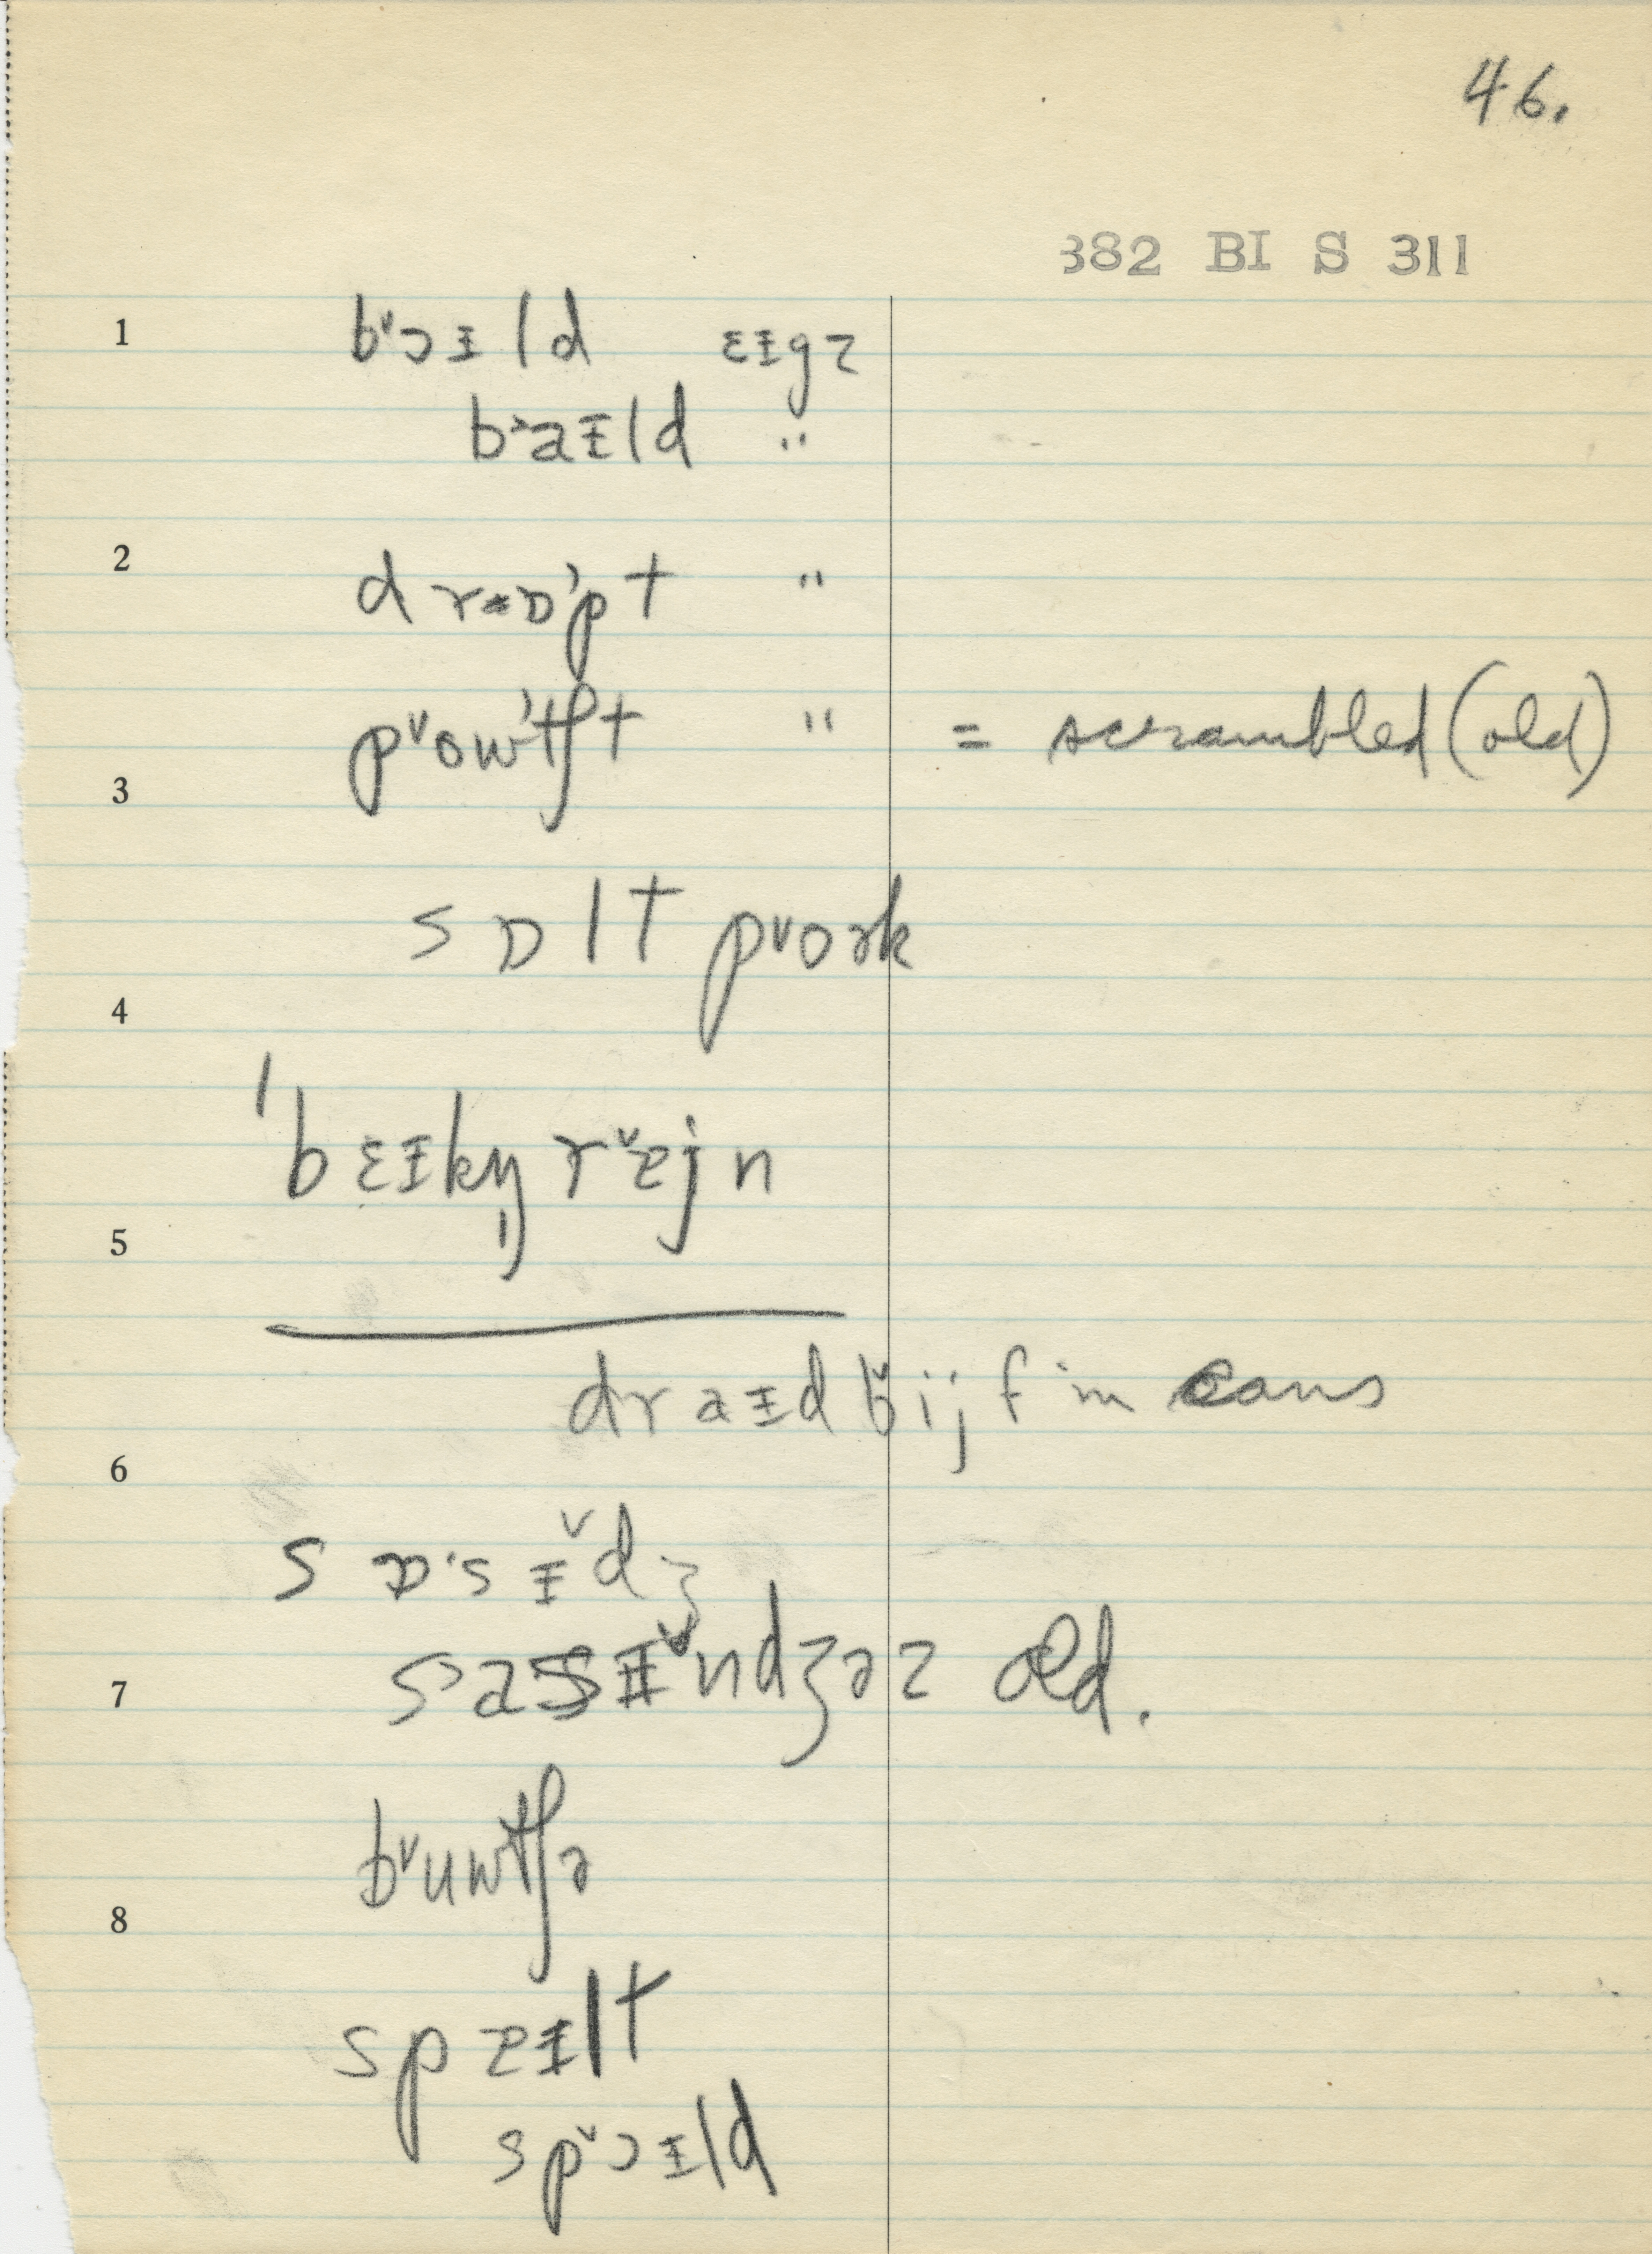 46.
382 BI S 311
1 bˇɔᵻld ɛᵻgz
b˃aᵻld "
2 drɒ˒pt "
pˇow˒tʃt " = scrambled (old)
3
sɒlt pˇoɚk
4
ˈbɛᵻkŋ̩ rˇɛjn
5
draᵻd bˇijf in cans
6
sɒ·sᵻˇdʒ
7 s˃asᵻˇndʒɚz old.
bˇuwtʃɚ
8
spɛᵻlt
spˇɔᵻld